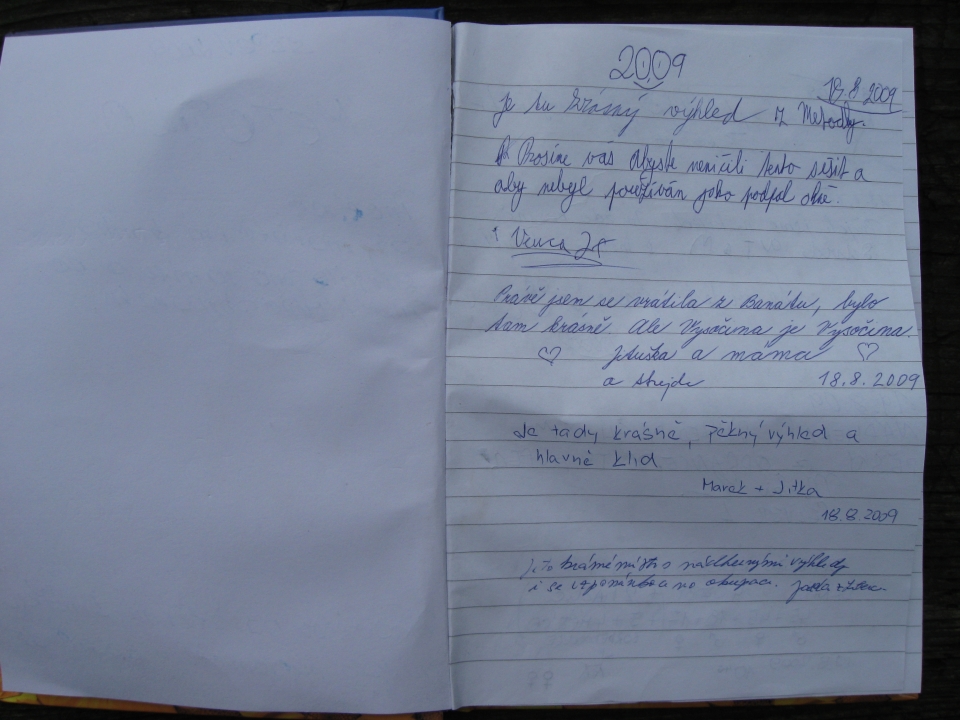 2009
18.8 2009
Je tu krásný výhled z Metodky.
Prosíme vás abyste neničili tento sešit a
aby nebyl používán jako podpal ohně.
Venca
Právě jsem se vrátila z Banátu, bylo
tam krásně Ale Vysočina je Vysočina.
a máma
a strejda 18.8.2009
Je tady krásně, pěkný výhled a
hlavně klid
Marek + Jitka
18.8.2009
Je to krásné místo s nádhernými výhledy
i se vzpomínkou na okupaci.